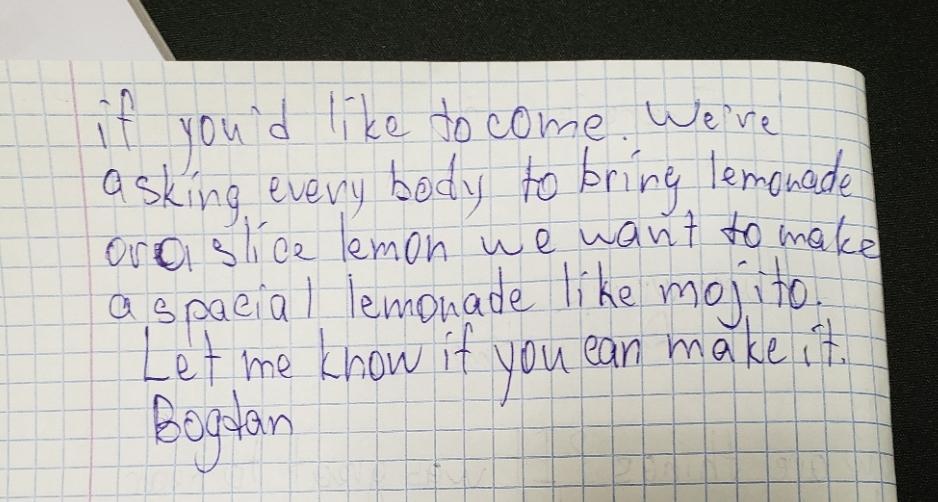 if you'd like to come. We're
asking every body to bring lemonade
or a slice lemon we want to make
a spacial lemonade like mojito.
Let me know if you can make it.
Bogdan